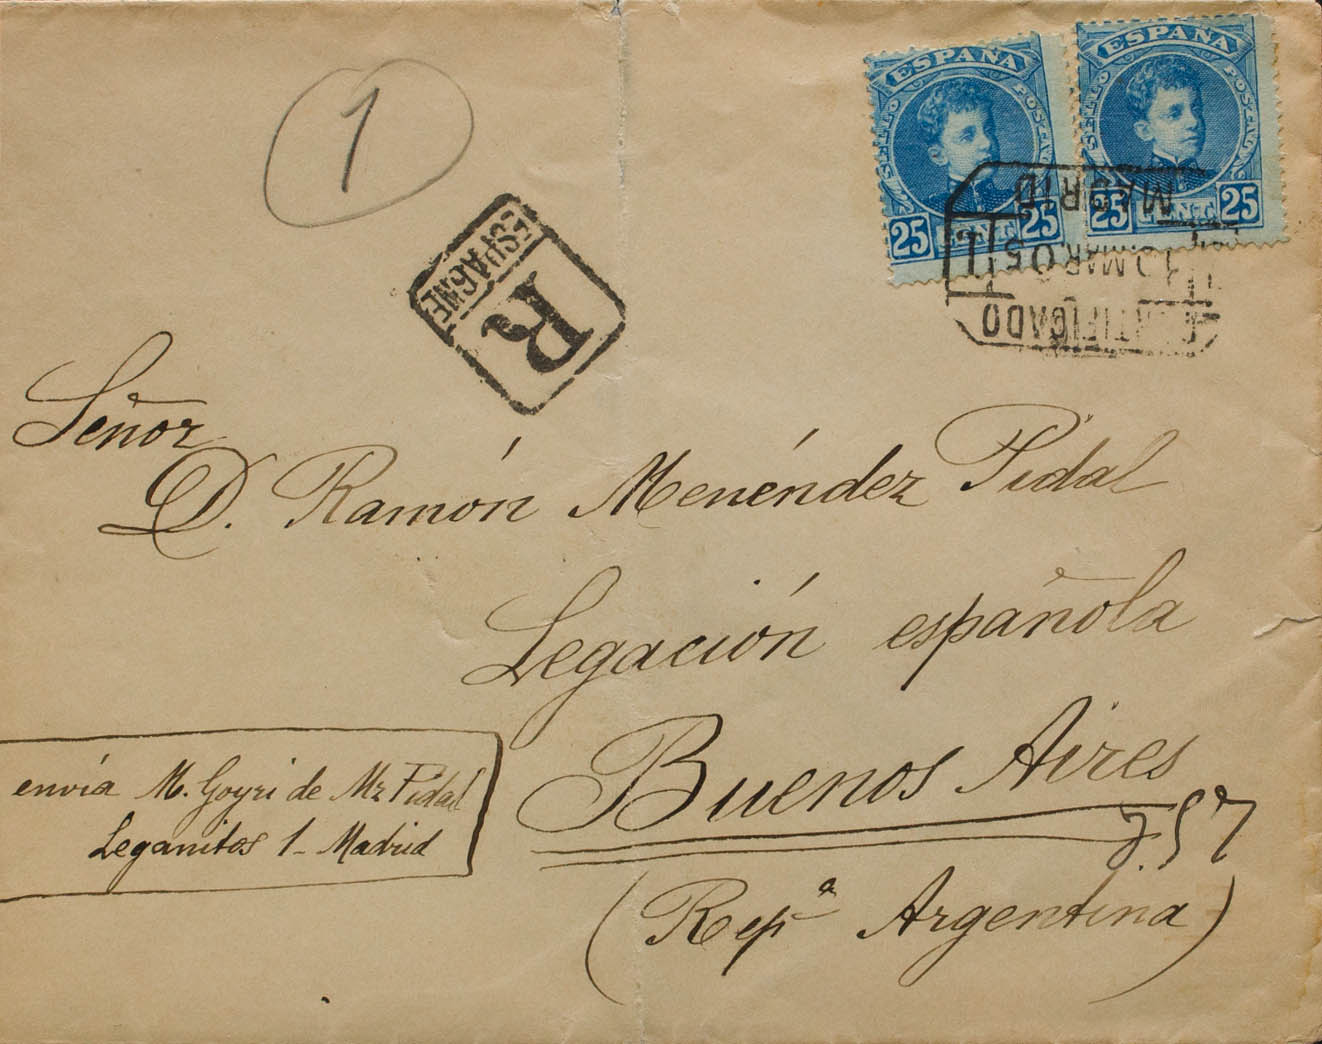 1
ESPAÑA
SELLO POSTAL
25 CENT. 25
ESPAÑA
SELLO POSTAL
25 CENT. 25
MADRID
MAR 05
CERTIFICADO
R
ESPAGNE
Señor
D. Ramón Menéndez Pidal
Legación española
Buenos Aires
(Repª Argentina)
envía M. Goyri de Mz Pidal
Leganitos 1 - Madrid